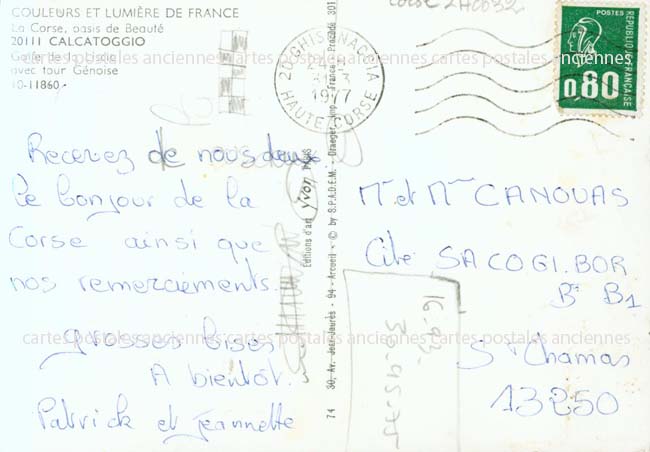 COULEURS ET LUMIÈRE DE FRANCE
La Corse, oasis de Beauté
20111 CALCATOGGIO
Golfe de la Liscia
avec tour Génoise
10-11860
20 GHISONACCIA
1977
HAUTE CORSE
POSTES
REPUBLIQUE FRANÇAISE
0,80
cartes postales anciennes cartes postales anciennes cartes postales anciennes
Recevez de nous deux
le bonjour de la
Corse ainsi que
nos remerciements.
grosses bises
A bientôt.
Patrick et jeannette
Editions d'art yvon PARIS
74 30, Av. Jean-Jaurès - 94 - Arcueil - © by S.P.A.D.E.M. - Draeger, Imp. - France - Procédé 301
Mr et Mme CANOVAS
Cité SACOGI.BOR
Bt B1
St Chamas
13250